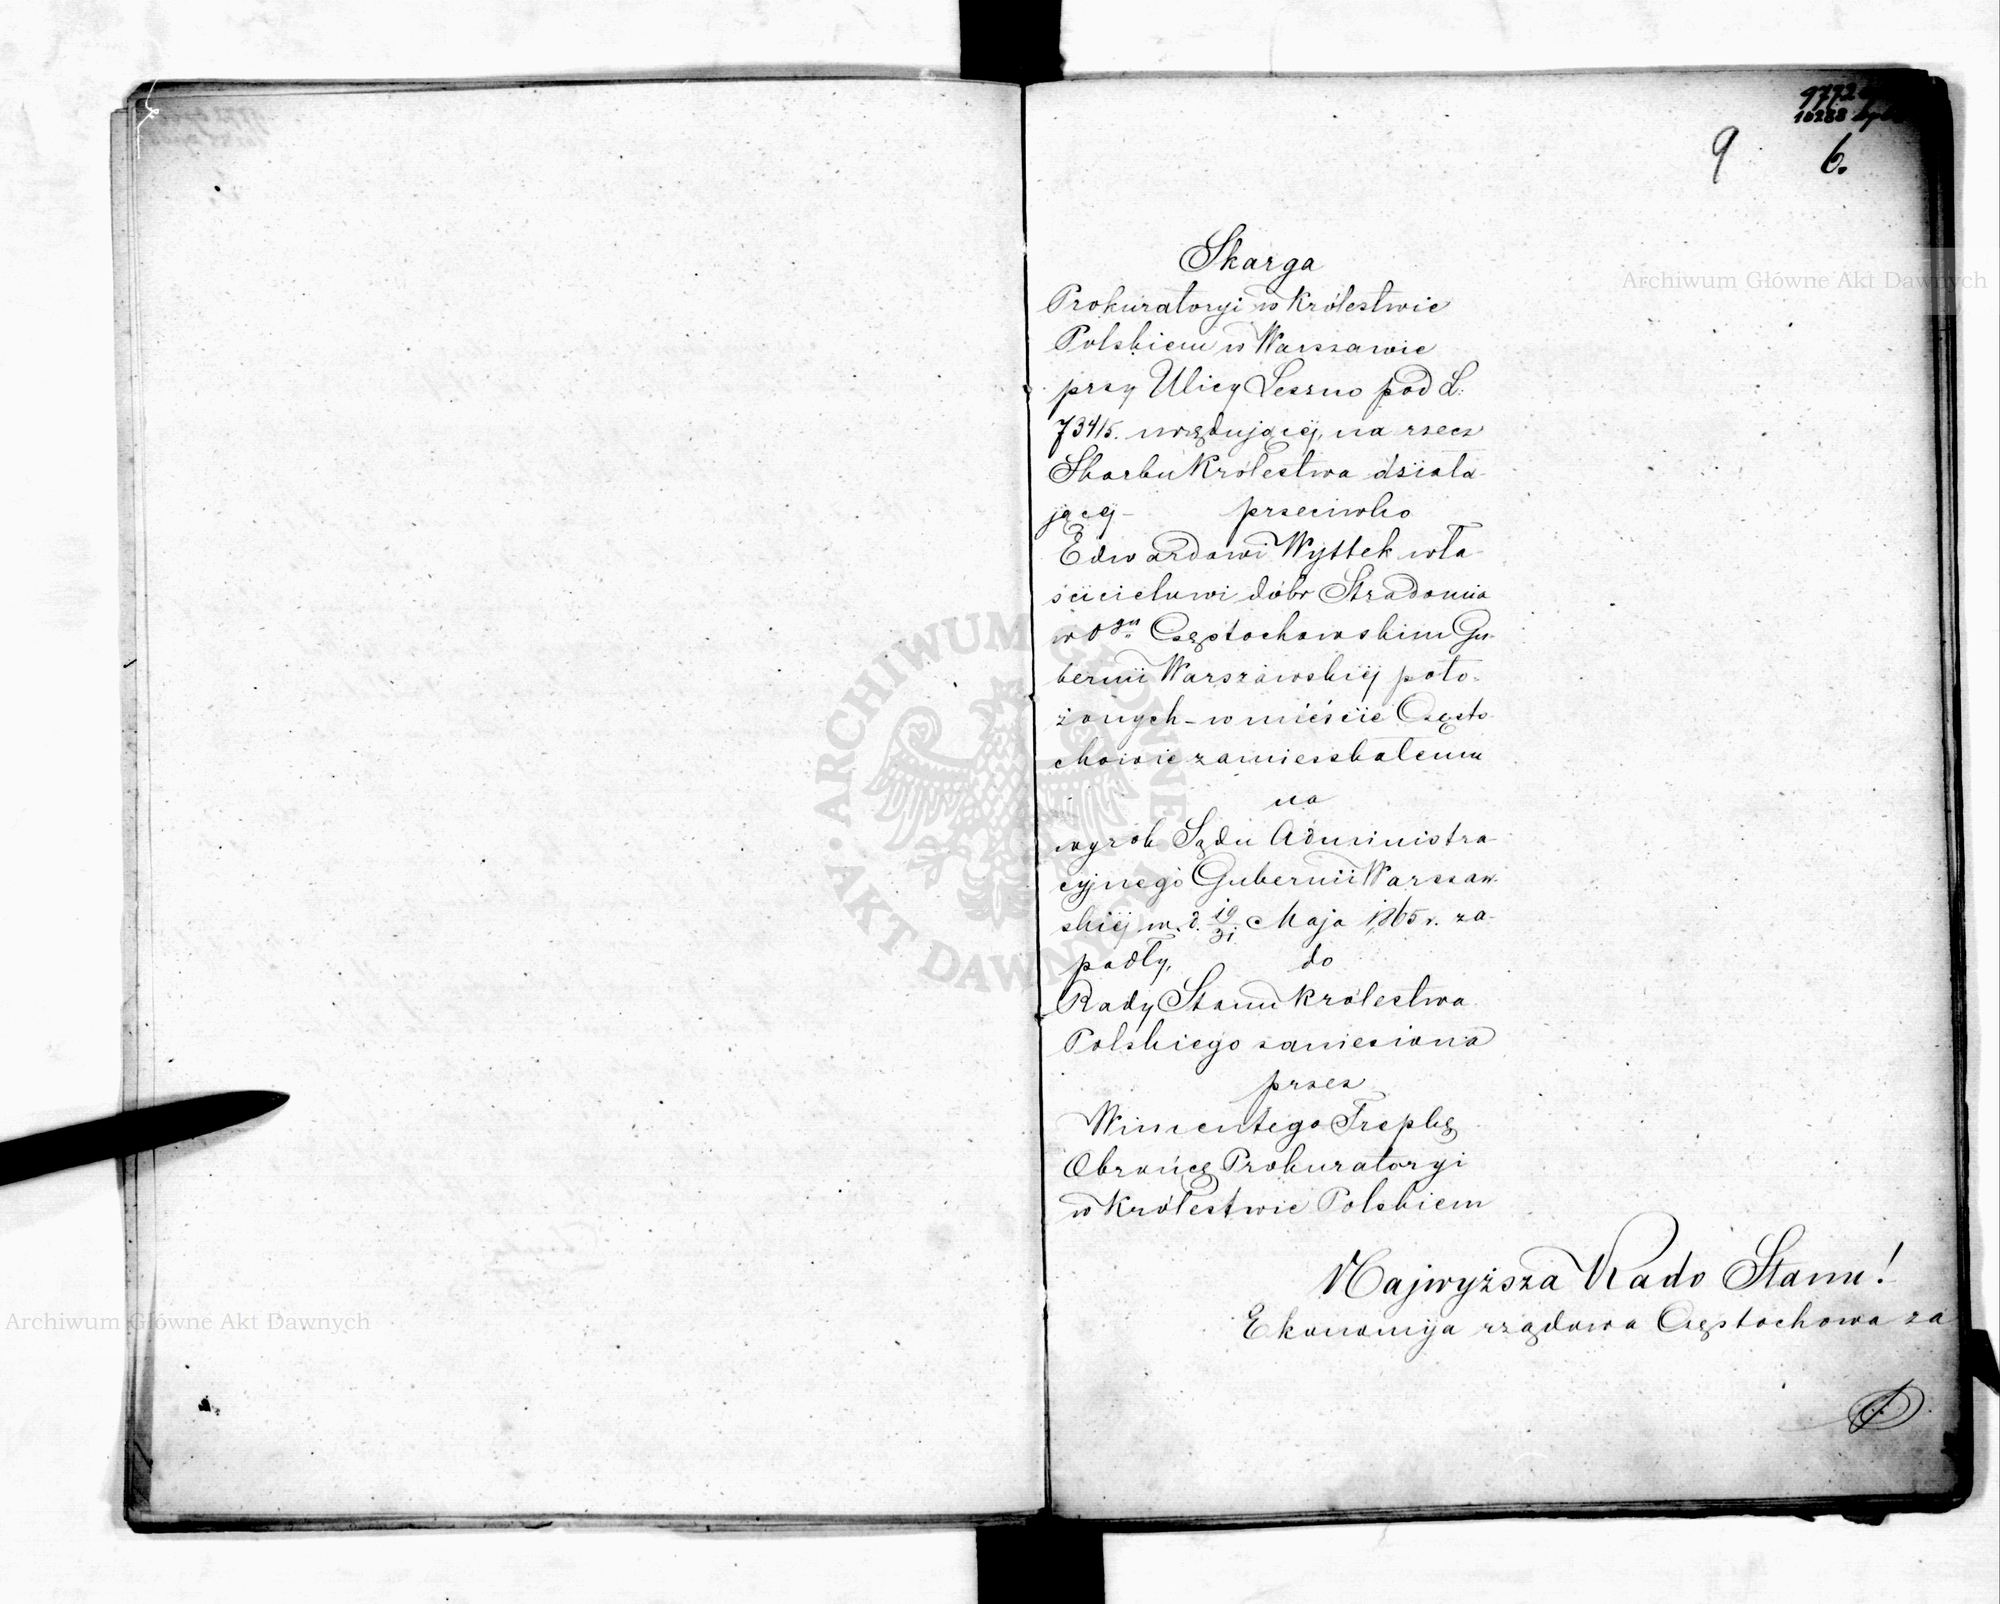 9772
10288
9 6.
Skarga
Prokuratoryi w Królestwie
Polskiem w Warszawie
przy Ulicy Leszno pod L:
734/5. urzędującéj, na rzecz
Skarbu Królestwa działa-
jącéj – przeciwko
Edwardowi Wyttek wła-
ścicielowi dóbr Stradomia
w Ogu Częstochowskim Gu-
bernii Warszawskiéj poło-
żonych – w mieście Często-
chowie zamieszkałemu
na
wyrok Sądu Administra-
cyjnego Gubernii Warszaw-
skiéj w d. 19/31 Maja 1865 r. za-
padły, do
Rady Stanu Królestwa
Polskiego zaniesiona
przez
Wincentego Trepkę
Obrońcę Prokuratoryi
w Królestwie Polskiem
Najwyższa Rado Stanu!
Ekonomija rządowa Częstochowa za
Archiwum Główne Akt Dawnych
Archiwum Główne Akt Dawnych
ARCHIWUM GŁÓWNE AKT DAWNYCH